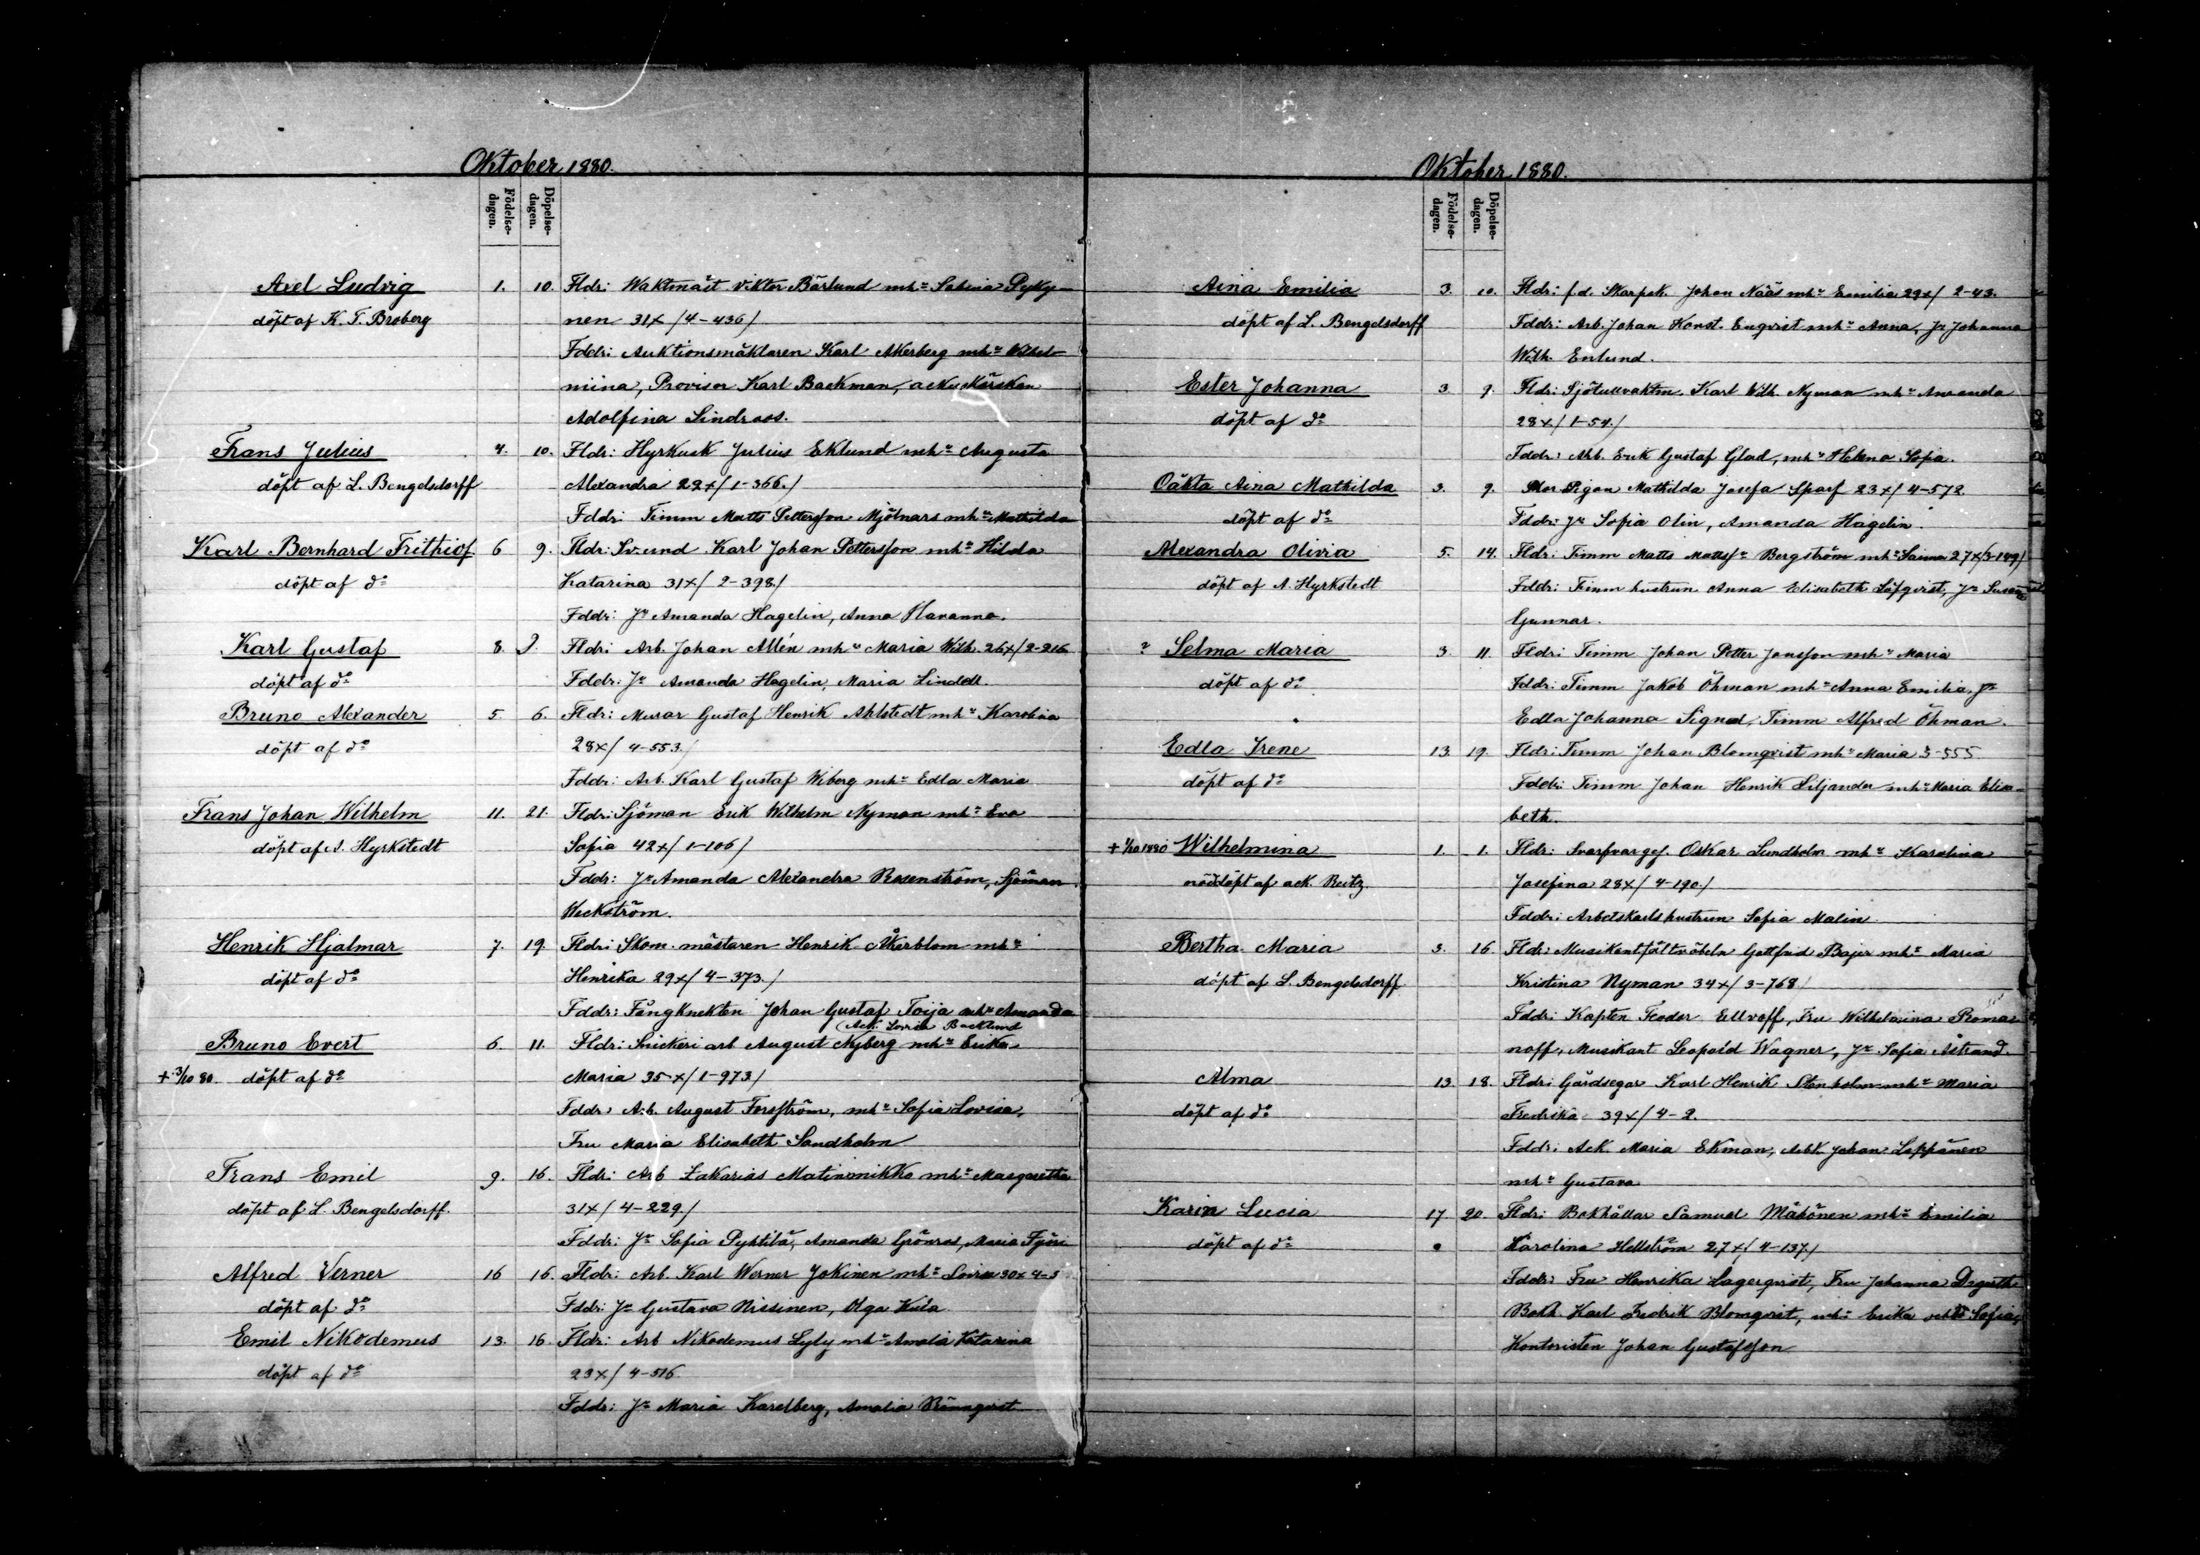 Oktober 1880.
Födelse-dagen.
Döpelse-dagen.
Axel Ludvig 1. 10. Fldr: Waktmäst Viktor Bärlund mhu Sabina Pyky-
döpt af K. T. Broberg nen 31 x/4-436/
Fddr: Auktionsmäklaren Karl Åkerberg mhu Wilhel-
miina, Provisor Karl Backman, ackuskörskan
Adolfina Lindroos.
Frans Julius 4. 10. Fldr: Hyrkusk Julius Eklund mhu Augusta
döpt af L. Bengelsdorff Alexandra 22 x/1-366./
Fddr: Timm Matts Pettersson Mjölnars mhu Mathilda
Karl Bernhard Frithiof 6 9. Fldr: Sv. und Karl Johan Pettersson mhu Hilda
döpt af do Katarina 31 x/2-398/
Fddr: Jn Amanda Hagelin, Anna Havanna.
Karl Gustaf 8. 9. Fldr: Arb. Johan Allén mhu Maria Wilh. 26 x/2-216
döpt af do Fddr: Jn Amanda Hagelin, Maria Lindell.
Bruno Alexander 5. 6. Fldr: Murar Gustaf Henrik Ahlstedt mhu Karolina
döpt af do 28 x/4-553/
Fddr: Arb. Karl Gustaf Wiberg mhu Edla Maria
Frans Johan Wilhelm 11. 21. Fldr: Sjöman Erik Wilhelm Nyman mhu Eva
döpt af A. Hyrkstedt Sofia 42 x/1-106/
Fddr: Jn Amanda Alexandra Rosenström, Sjöman
Weckström.
Henrik Hjalmar 7. 19. Fldr: Skom. mästaren Henrik Åkerblom mhu
döpt af do Henrika 29 x/4-373./
Fddr: Fångknekten Johan Gustaf Toija mhu Amanda
(Ack: Lovisa Backlund
Bruno Evert 6. 11. Fldr: Snickeri arb August Nyberg mhu Erika
+ 3/10 80. döpt af do Maria 35 x/1-973/
Fddr: Arb. August Forsström, mhu Sofia Lovisa,
Fru Maria Elisabeth Sandholm
Frans Emil 9. 16. Fldr: Arb Zakarias Matinmikko mhu Margaretha
döpt af L. Bengelsdorff. 31 x/4-229/
Fddr: Jn Sofia Pyhtilä, Amanda Grönros, Maria
Alfred Verner 16 16. Fldr: Arb. Karl Werner Jokinen mhu Lovisa 30 x 4-5
döpt af do Fddr: Jn Gustava Nissinen, Olga Kula
Emil Nikodemus 13. 16 Fldr: Arb Nikodemus Lyly mhu Amalia Katarina
döpt af do 23 x/4-516.
Fddr: Jn Maria Karelberg, Amalia Rönnqvist
Oktober 1880.
Födelse-dagen.
Döpelse-dagen.
Aina Emilia 3. 10. Fldr: f.d. Skarpsk. Johan Nääs mhu Emilia 29 x/2-43.
döpt af L. Bengelsdorff Fddr: Arb. Johan Konst. Enqvist mhu Anna, Jn Johanna
Wilh. Enlund.
Ester Johanna 3. 9. Fldr: Sjötullvaktm. Karl Wilh. Nyman mhu Amanda
döpt af do 28 x/1-54./
Fddr: Arb. Erik Gustaf Glad, mhu Helena Sofia.
Oäkta Aina Mathilda 3. 9. Mor Pigan Mathilda Josefa Sparf 23 x/4-572
döpt af do Fddr: Jn Sofia Olin, Amanda Hagelin.
Alexandra Olivia 5. 14. Fldr: Timm Matts Mattsn Bergström mhu Sanna 27 x/3-149/
döpt af A. Hyrkstedt Fddr: Timm hustrun Anna Elisabeth Löfqvist, Jn Susanna
Gunnar.
? Selma Maria 3. 11. Fldr: Timm Johan Petter Jansson mhu Maria
döpt af do Fddr: Timm Jakob Öhman mhu Anna Emilia, Jn
Edla Johanna Signel, Timm Alfred Öhman.
Edla Irene 13. 19. Fldr: Timm Johan Blomqvist mhu Maria 3-555
döpt af do Fddr: Timm Johan Henrik Siljander mhu Maria Elisa-
beth.
+ 1/10 1880 Wilhelmina 1. 1. Fldr: Svarfvar ges. Oskar Lundholm mhu Karolina
nöddöpt af ack. Reitz. Josefina 28 x/4-190/
Fddr: Arbetskarlshustrun Sofia Malin
Bertha Maria 3. 16. Fldr: Musikantfältväbeln Gottfrid Bajer mhu Maria
döpt af L. Bengelsdorff Kristina Nyman 34 x/3-768/
Fddr: Kapten Feodor Ellvoff, Fru Wilhelmina Roma-
noff, Musikant Leopold Wagner, Jn Sofia Åstrand.
Alma 13. 18. Fldr: Gårdsegar Karl Henrik Stenholm mhu Maria
döpt af do Fredrika 39 x/4-2.
Fddr: Ack. Maria Ekman, Arbt. Johan Leppänen
mhu Gustava
Karin Lucia 17 20. Fldr: Bokhållar Samuel Mäkönen mhu Emilia
döpt af do Karolina Hellström 27 x/4-137/
Fddr: Fru Henrika Lagerqvist, Fru Johanna
Bokh. Karl Fredrik Blomqvist, mhu Erika Sofia,
Kontoristen Johan Gustafsson